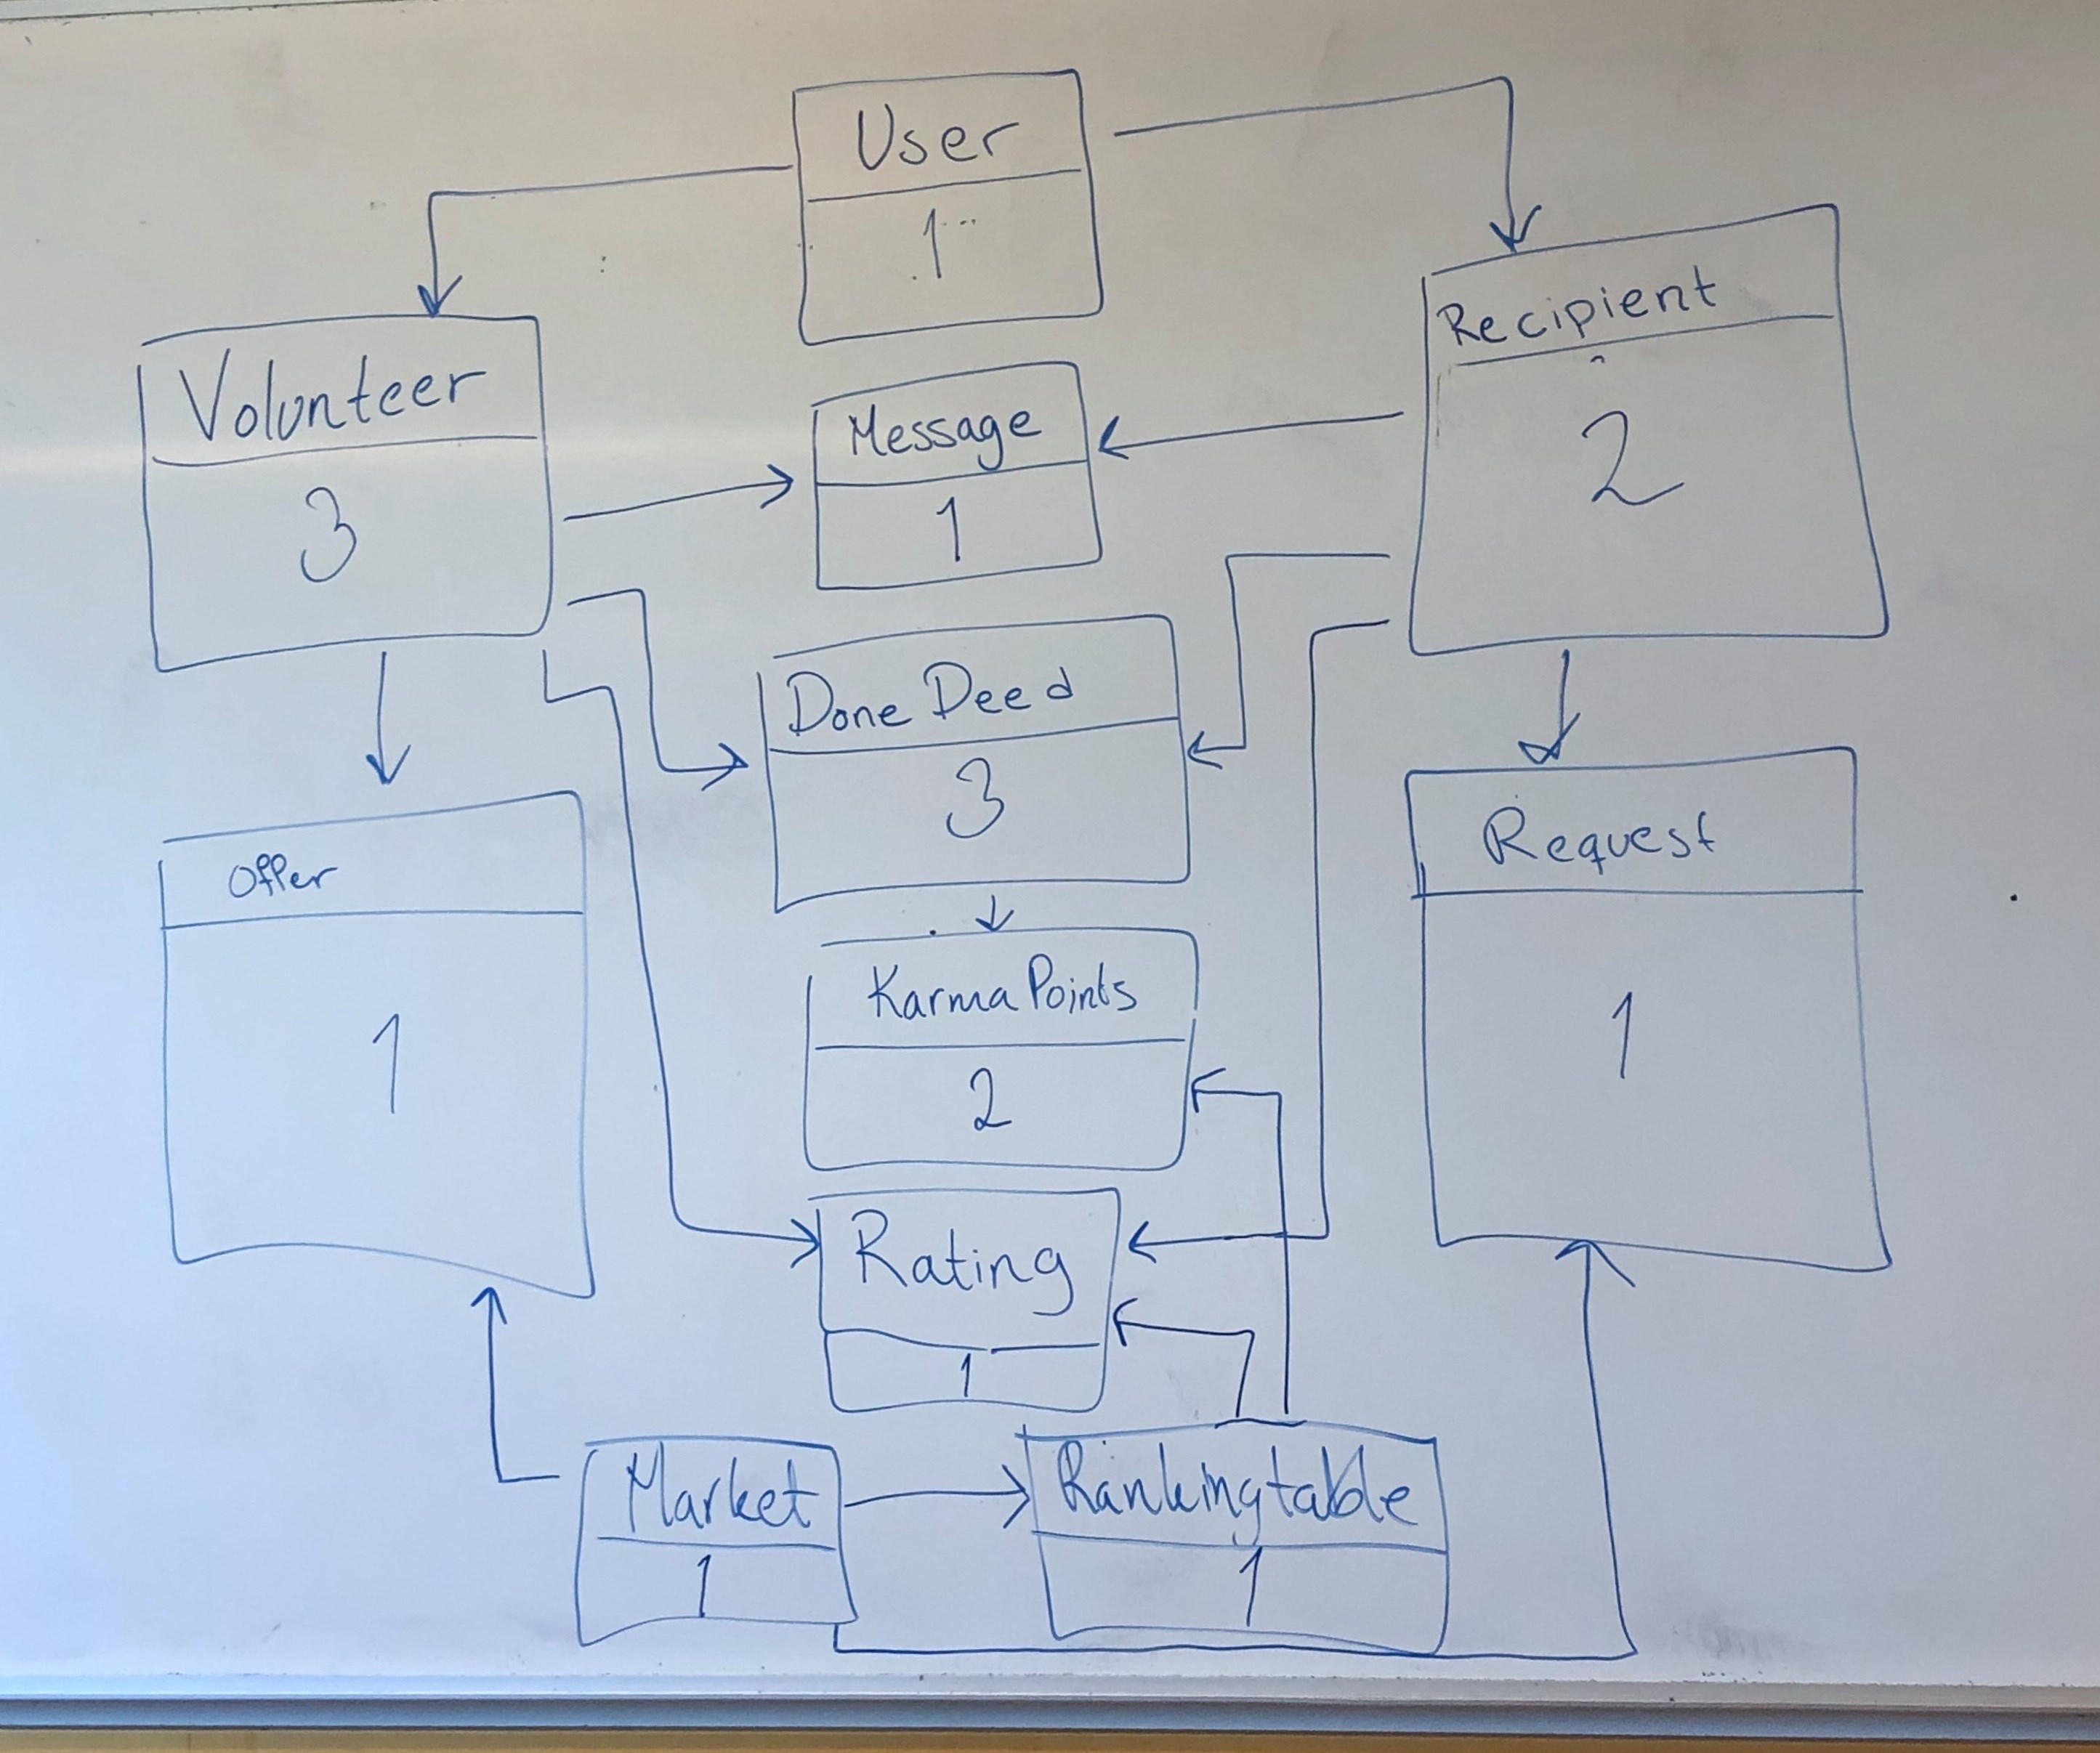 User
1
Recipient
2
Volunteer
3
Message
1
Done Deed
3
Offer
1
Request
1
Karma Points
2
Rating
1
Market
1
Rankingtable
1